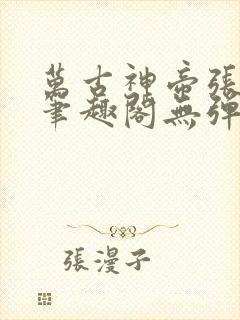 萬古神帝張
筆趣閣無彈
張漫子